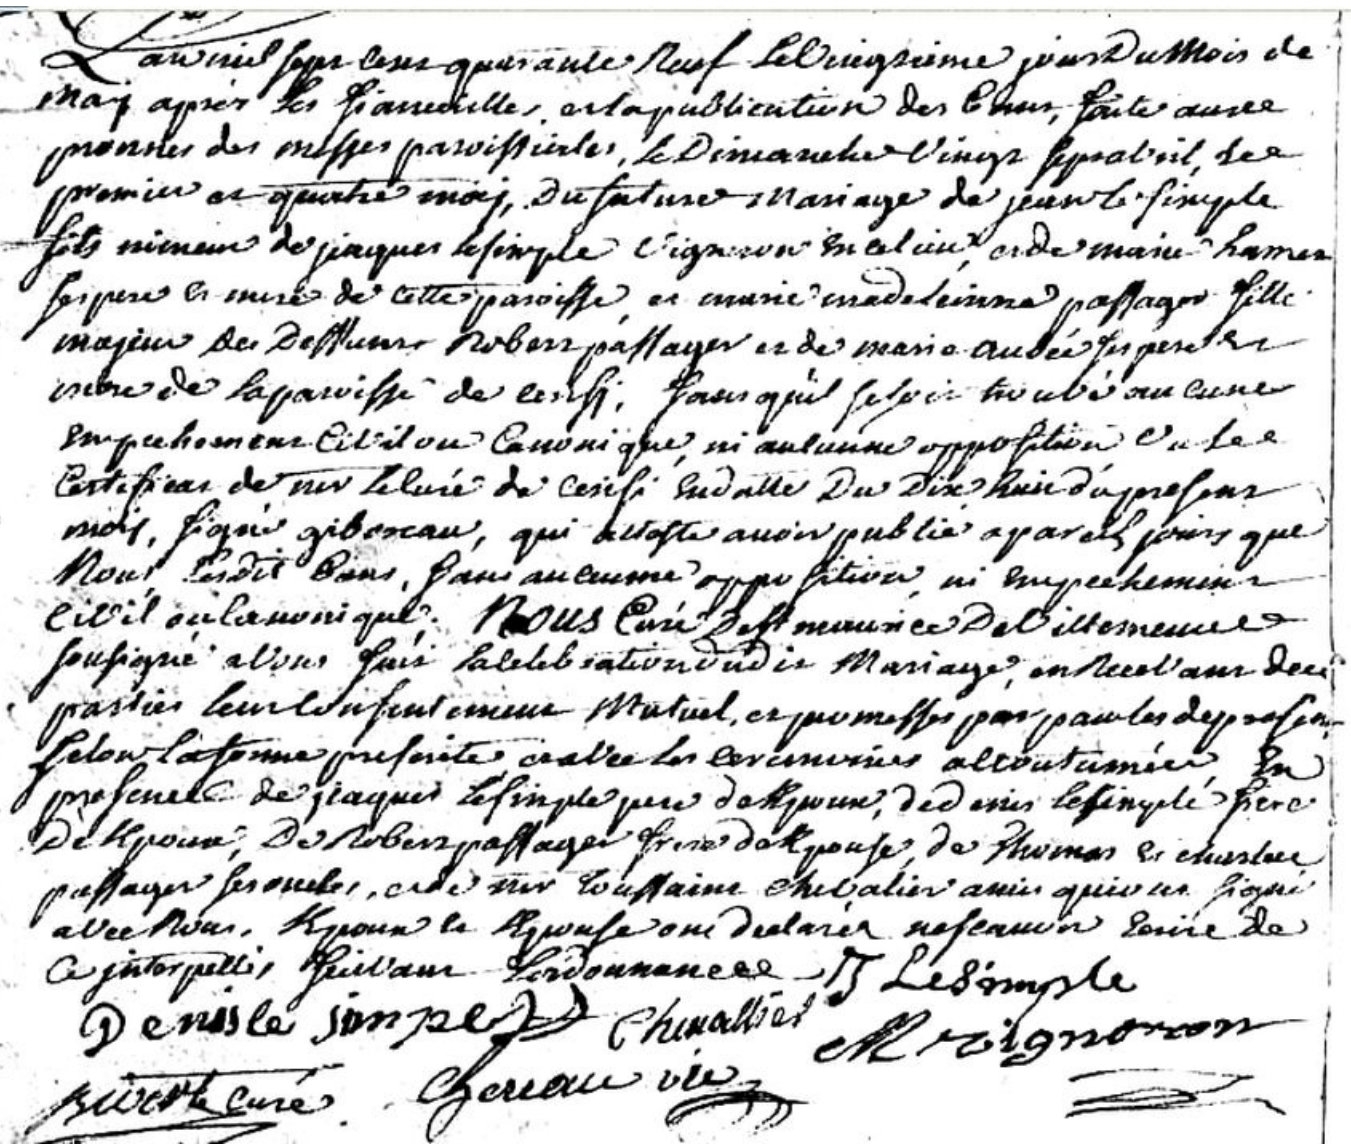 L'an mil sept cent quarante Neuf Le Vingtieme jour Du Mois de
May après Les fiancailles, et la publication des bans, faite aux
prosnes des messes paroissiales, Le Dimanche Vingt sept avril, Les
premier et quatre may, Du futur Mariage de jean le simple
fils mineur de jaques lesimple Vigneron en ce lieu, et de marie hamer
ses pere et mere de cette paroisse, et marie madeleinne passager fille
majeur des Deffunts Robert passager et de marie audée ses pere et
mere de la paroisse de cersi, sans qu'il se soit trouvé aucune
Empechement Civil ou Canonique, ni aucunne opposition Vu Le
Certificat de mr Le curé de cersi En datte Du Dix huit du present
mois, signé giboreau, qui atteste avoir publié a pareils jours que
Nous, Lesdit bans, sans aucunne opposition, ni empechement
Civil ou Canonique. Nous Curé De st maurice De Villemeuve
sousigné avons fait la celebration dudit Mariage, en Recevant des
parties leur Consentement Mutuel, et promesses par paroles de present
selon la forme prescrite et avec les ceremonies accoutumées, En
presence de jaques lesimple pere de l'epoux, de denis lesimple frere
De l'epoux, De Robert passager frere de l'epouse, de Thomas et charles
passager ses oncles, et de mr toussaint chevalier amis qui ont signé
avec Nous. l'epoux et l'epouse ont declarés ne scavoir Ecrire de
Ce interpellés suivant L'ordonnance J LeSimple
Denis le simple Chevallier M vigneron
le Curé Chereau